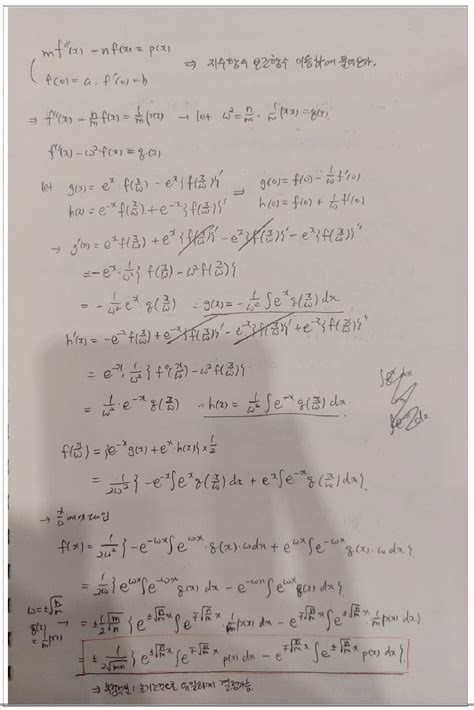 mf''(x) - nf(x) = p(x)
f(0) = a. f'(0) = b
⇒ 지수함수
⇒ f''(x) - n/m f(x) = 1/m p(x) → let ω² = n/m. 1/m p(x) = g(x)
f''(x) - ω² f(x) = g(x)
let g(x) = e^x f(x/ω) - e^x {f(x/ω)}' ⇒ g(0) = f(0) - 1/ω f'(0)
h(x) = e^-x f(x/ω) + e^-x {f(x/ω)}' h(0) = f(0) + 1/ω f'(0)
→ g'(x) = e^x f(x/ω) + e^x {f(x/ω)}' - e^x {f(x/ω)}' - e^x {f(x/ω)}''
= - 1/ω² e^x g(x/ω) ∴ g(x) = - 1/ω² ∫ e^x g(x/ω) dx
h'(x) = -e^-x f(x/ω) + e^-x {f(x/ω)}' - e^-x {f(x/ω)}' + e^-x {f(x/ω)}''
= e^-x · 1/ω² { f''(x/ω) - ω² f(x/ω) }
= 1/ω² · e^-x g(x/ω) ∴ h(x) = 1/ω² ∫ e^-x g(x/ω) dx
f(x/ω) = {e^-x g(x) + e^x · h(x)} × 1/2
= 1/2ω² { -e^-x ∫ e^x g(x/ω) dx + e^x ∫ e^-x g(x/ω) dx }
f(x) = 1/2ω² { -e^-ωx ∫ e^ωx · g(x) · ωdx + e^ωx ∫ e^-ωx g(x) · ω dx }
= 1/2ω { e^ωx ∫ e^-ωx g(x) dx - e^-ωx ∫ e^ωx g(x) dx }
ω = ±√(n/m)
g(x) = 1/m p(x)
= ± 1/2 √(m/n) { e^(±√(n/m) x) ∫ e^(∓√(n/m) x) · 1/m p(x) dx - e^(∓√(n/m) x) ∫ e^(±√(n/m) x) · 1/m p(x) dx }
= ± 1/(2√mn) { e^(±√(n/m) x) ∫ e^(∓√(n/m) x) p(x) dx - e^(∓√(n/m) x) ∫ e^(±√(n/m) x) p(x) dx }